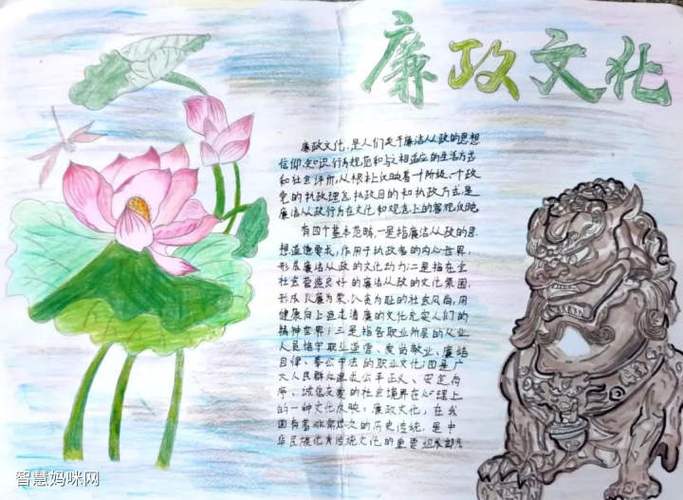 廉政文化
廉政文化,是人们关于廉洁从政的思想
信仰、知识、行为规范和与之相适应的生活方式
和社会评价,从根本上反映着一个阶级、一个政
党的执政理念、执政目的和执政方式,是
廉洁从政行为在文化和观念上的客观反映。
有四个基本范畴,一是指廉洁从政的思
想道德要求,作用于执政者的内心世界,
形成廉洁从政的文化动力;二是指在全
社会营造良好的廉洁从政的文化氛围,
形成以廉为荣、以贪为耻的社会风尚,用
健康向上追走清廉的文化充实人们的
精神世界;三是指各职业所属的从业
人员恪守职业道德、爱岗敬业、廉洁
自律、奉公守法的职业文化;四是广
大人民群众追求公平正义、安定有
序、诚信友爱的社会境界在心理上
的一种文化反映。廉政文化,在我
国有着非常悠久的历史传统,是中
华民族优秀传统文化的重要组成部分
智慧妈咪网